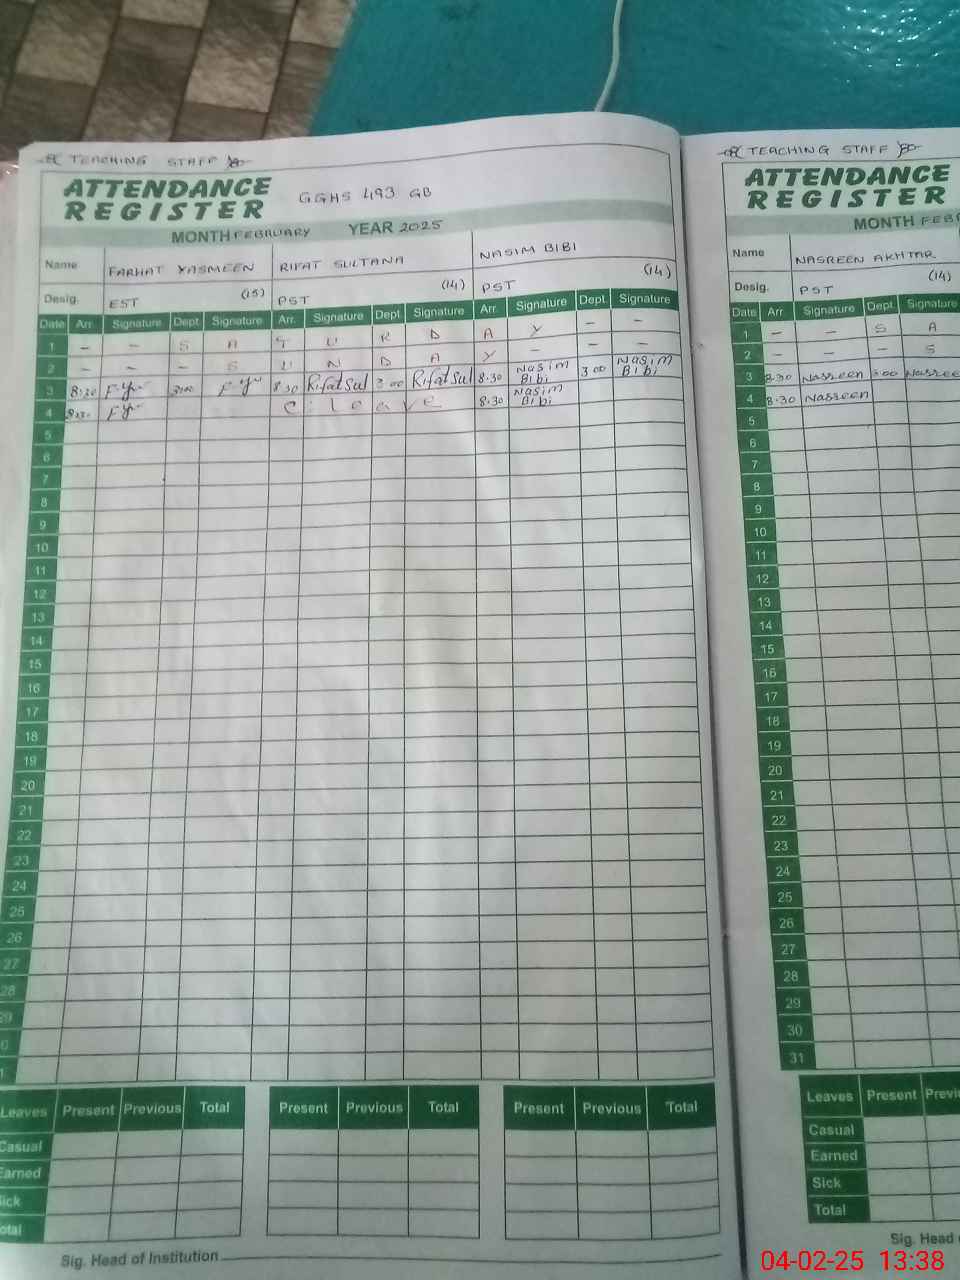 TEACHING STAFF
ATTENDANCE
REGISTER
GGHS 493 GB
MONTH FEBRUARY YEAR 2025
Name FARHAT YASMEEN RIFAT SULTANA NASIM BIBI
Desig. EST (15) PST (14) PST (14)
Date Arr. Signature Dept. Signature Arr. Signature Dept. Signature Arr. Signature Dept. Signature
1 - - S A T U R D A Y - -
2 - - - S U N D A Y - - -
3 8:30 3:00 8:30 Rifat Sul 3:00 Rifat Sul 8:30 Nasim Bibi 3:00 Nasim Bibi
4 8:30 C. leave 8:30 Nasim Bibi
5
6
7
8
9
10
11
12
13
14
15
16
17
18
19
20
21
22
23
24
25
26
27
28
29
0
1
Leaves Present Previous Total Present Previous Total Present Previous Total
Casual
Earned
Sick
Total
Sig. Head of Institution
TEACHING STAFF
ATTENDANCE
REGISTER
MONTH FEBR
Name NASREEN AKHTAR
Desig. PST (14)
Date Arr. Signature Dept. Signature
1 - - S A
2 - - - S
3 8:30 Nasreen 3:00 Nasree
4 8:30 Nasreen
5
6
7
8
9
10
11
12
13
14
15
16
17
18
19
20
21
22
23
24
25
26
27
28
29
30
31
Leaves Present Previ
Casual
Earned
Sick
Total
Sig. Head
04-02-25 13:38